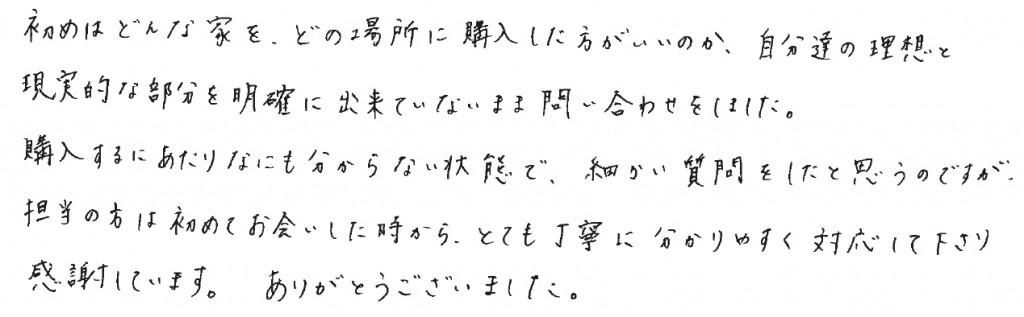 初めはどんな家を、どの場所に購入した方がいいのか、自分達の理想と
現実的な部分を明確に出来ていないまま問い合わせをしました。
購入するにあたりなにも分からない状態で、細かい質問をしたと思うのですが、
担当の方は初めてお会いした時から、とても丁寧に分かりやすく対応して下さり
感謝しています。 ありがとうございました。